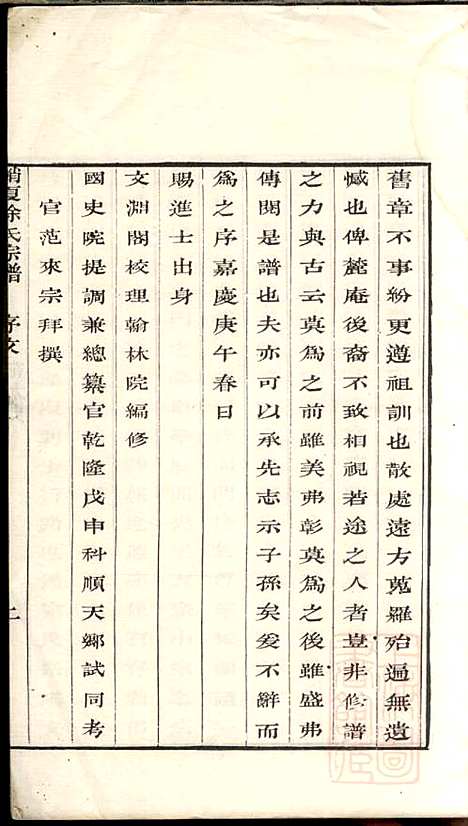 舊章不事紛更遵祖訓也散處遠方蒐羅殆遍無遺
憾也俾麓庵後裔不致相視若途之人者豈非修譜
之力與古云莫為之前雖美弗彰莫為之後雖盛弗
傳閱是譜也夫亦可以承先志示子孫矣爰不辭而
為之序嘉慶庚午春日
賜進士出身
文淵閣校理翰林院編修
國史院提調兼總纂官乾隆戊申科順天鄉試同考
官范來宗拜撰
夏徐氏宗譜 序文